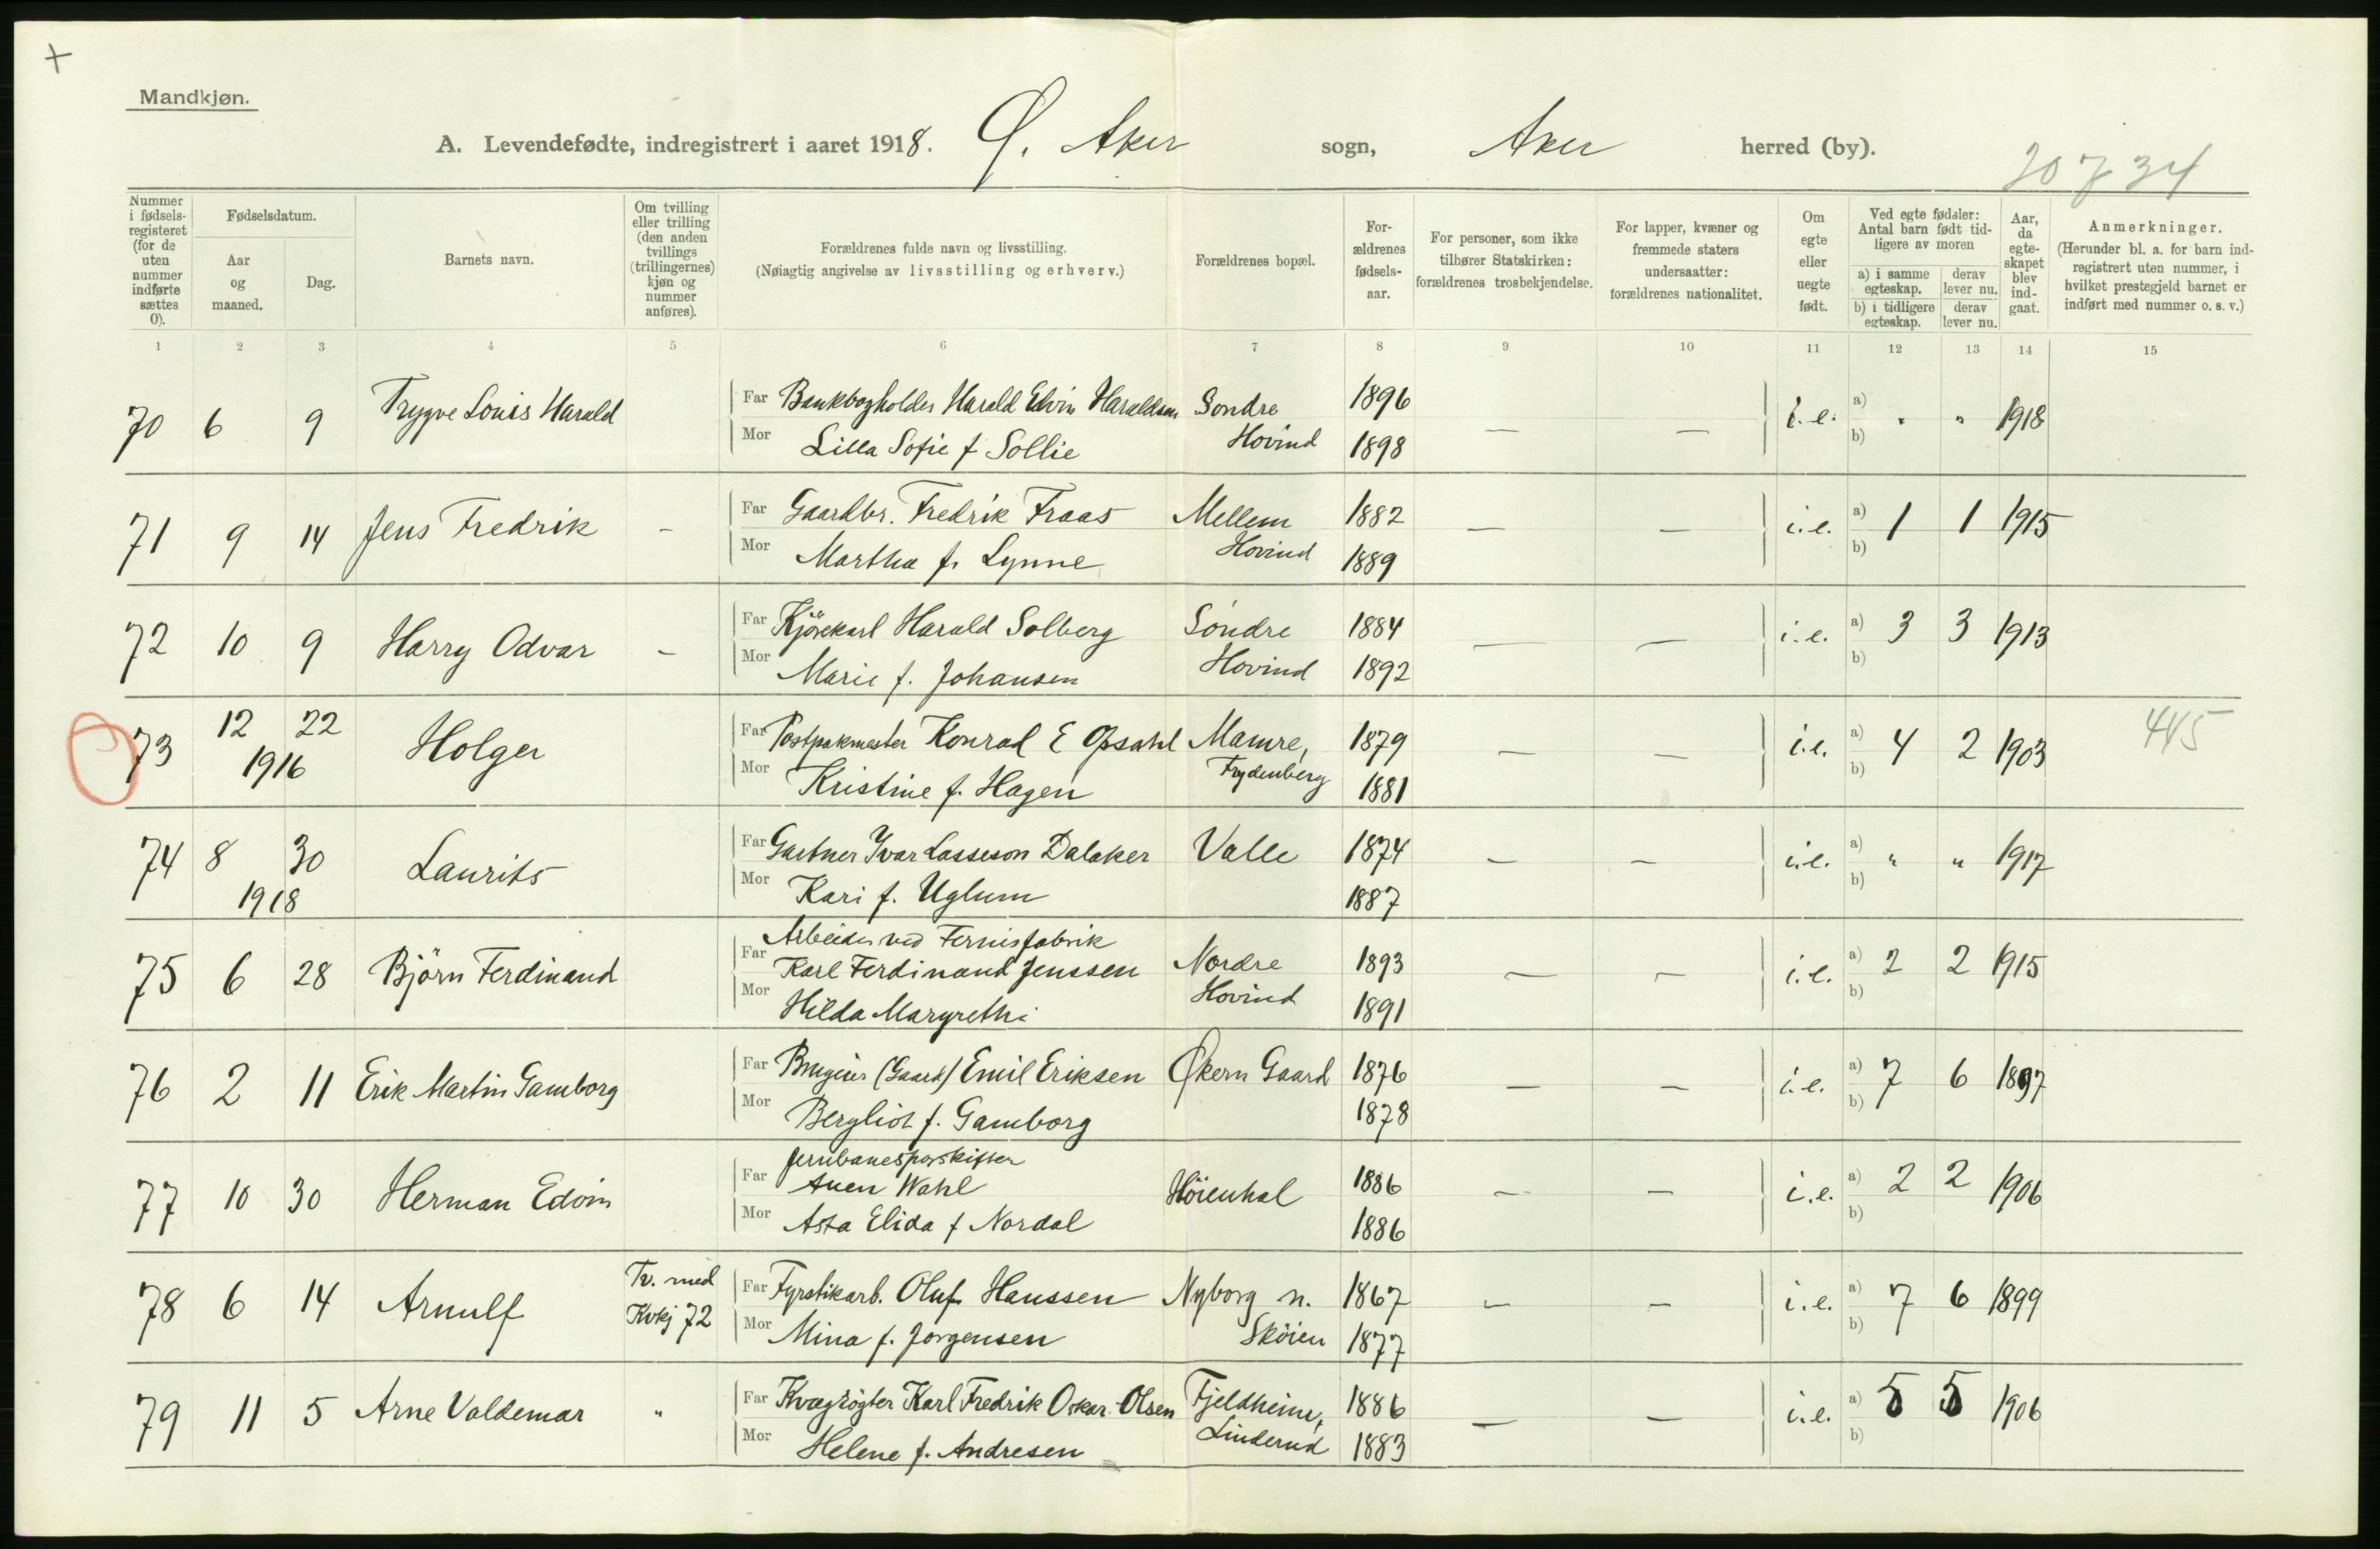 Mandkjøn.
A. Levendefødte, indregistrert i aaret 1918. Ø. Aker sogn, Aker herred (by).
20734
Nummer i fødselsregisteret (for de uten nummer indførte sættes 0).
Fødselsdatum.
Aar og maaned.
Dag.
Barnets navn.
Om tvilling eller trilling (den anden tvillings (trillingernes) kjøn og nummer anføres).
Forældrenes fulde navn og livsstilling.
(Nøiagtig angivelse av livsstilling og erhverv.)
Forældrenes bopæl.
Forældrenes fødselsaar.
For personer, som ikke tilhører Statskirken: forældrenes trosbekjendelse.
For lapper, kvæner og fremmede staters undersaatter: forældrenes nationalitet.
Om egte eller uegte født.
Ved egte fødsler: Antal barn født tidligere av moren
a) i samme egteskap. derav lever nu.
b) i tidligere egteskap. derav lever nu.
Aar, da egteskapet blev indgaat.
Anmerkninger.
(Herunder bl. a. for barn indregistrert uten nummer, i hvilket prestegjeld barnet er indført med nummer o. s. v.)
1 2 3 4 5 6 7 8 9 10 11 12 13 14 15
70 6 9 Trygve Louis Harald Far Bankbogholder Harald Edvin Haraldsen Søndre 1896 — — i.e. a) " " 1918
Mor Lilla Sofie f Sollie Hovind 1898 b)
71 9 14 Jens Fredrik - Far Gaardbr. Fredrik Fraas Mellem 1882 — — i.e. a) 1 1 1915
Mor Martha f. Lynne Hovind 1889 b)
72 10 9 Harry Odvar - Far Kjörekarl Harald Solberg Söndre 1884 — — i.e. a) 3 3 1913
Mor Marie f. Johansen Hovind 1892 b)
73 12 22 Holger Far Postpakmester Konrad E Opsahl Mamre, 1879 — — i.e. a) 4 2 1903 445
1916 Mor Kristine f. Hagen Frydenberg 1881 b)
74 8 30 Laurits Far Gartner Ivar Lasseson Dalaker Valle 1874 — — i.e. a) " " 1917
1918 Mor Kari f. Uglum 1887 b)
Arbeider ved Fernisfabrik
75 6 28 Björn Ferdinand Far Karl Ferdinand Jenssen Nordre 1893 — — i.e. a) 2 2 1915
Mor Hilda Margrethe Hovind 1891 b)
76 2 11 Erik Martin Gamborg Far Bruger (Gaard) Emil Eriksen Økern Gaard 1876 — — i.e. a) 7 6 1897
Mor Bergliot f. Gamborg 1878 b)
Jernbanesporskifter
77 10 30 Herman Edvin Far Wahl Höienhal 1886 — — i.e. a) 2 2 1906
Mor Asta Elida f Nordal 1886 b)
78 6 14 Arnulf Tv. med Far Fyrstikarb. Oluf Hanssen Nyborg n. 1867 — — i.e. a) 7 6 1899
Kvkj 72 Mor Mina f. Jorgensen Sköien 1877 b)
79 11 5 Arne Valdemar " Far Kvægrögter Karl Fredrik Oskar Olsen Fjeldheim, 1886 — — i.e. a) 5 5 1906
Mor Helene f. Andresen Linderud 1883 b)